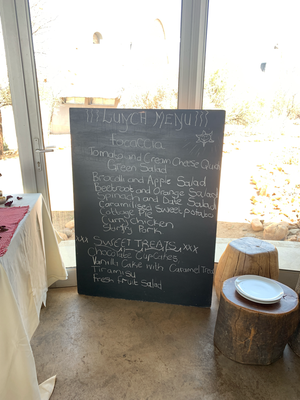 !!! LUNCH MENU !!!
focaccia
Tomato and Cream Cheese Quiche
Green Salad
Brocolli and Apple Salad
Beetroot and Orange Salad
Spinach and Date Salad
Caramelised sweet potatoes
Cottage Pie
Curry Chicken
Stirfry Pork
xxx SWEET TREATS xxx
Chocolate Cupcakes
Vanilla Cake with Caramel Treat
Tiramisu
Fresh Fruit Salad